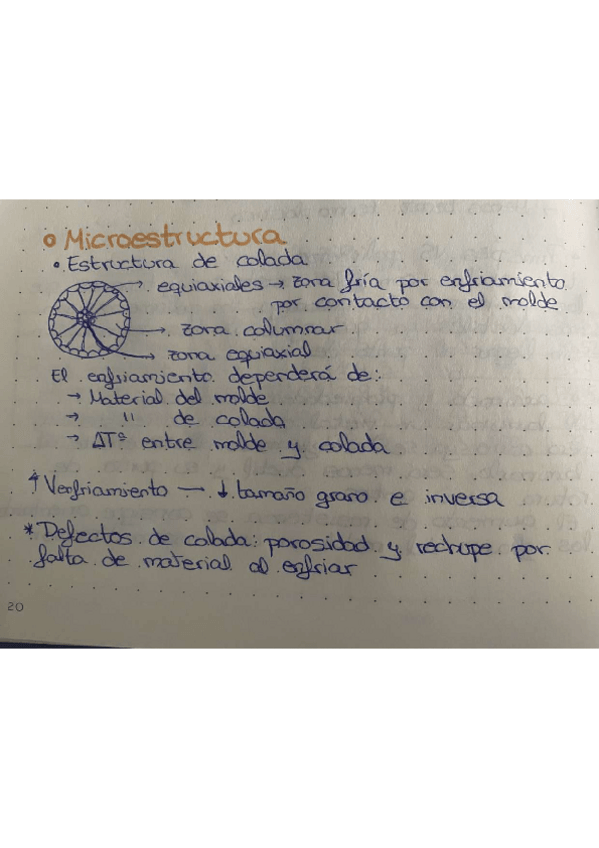 o Microestructura
• Estructura de colada
equiaxiales → zona fría por enfriamiento
por contacto con el molde
→ zona columnar
→ zona equiaxial
El enfriamiento dependerá de:
→ Material del molde
→ " de colada
→ ΔTº entre molde y colada
↑ Venfriamiento → ↓ tamaño grano e inversa
* Defectos de colada: porosidad y rechupe por
falta de material al enfriar
20